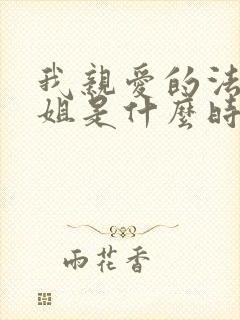 我親愛的法
姐是什麼時
雨花香